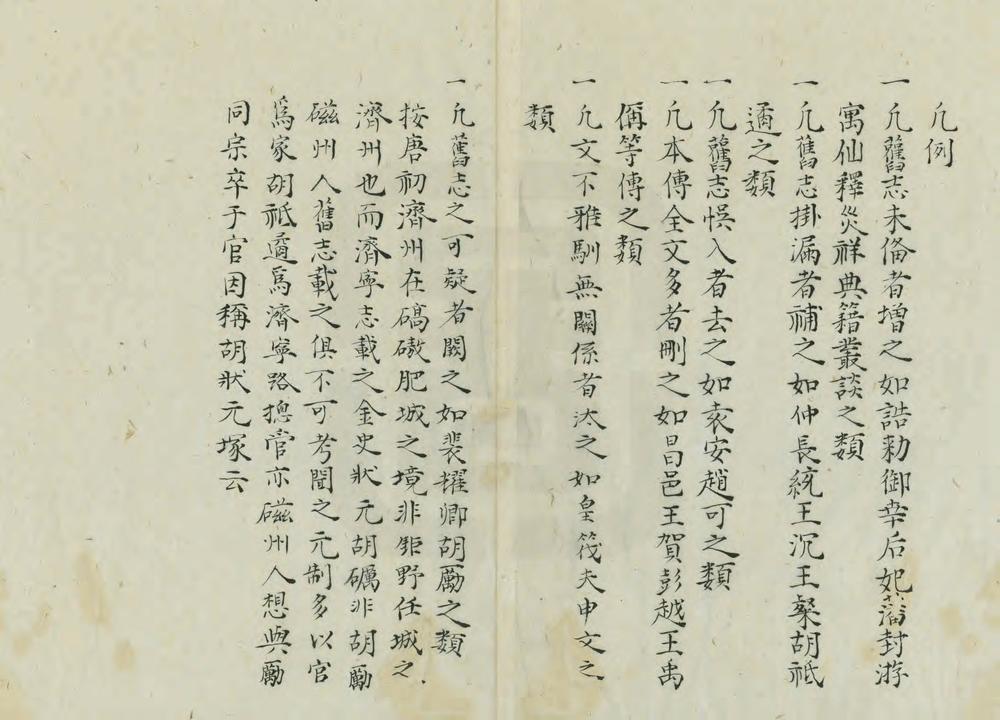 凡例
一凡舊志未備者增之如誥勅御幸后妃藩封游
寓仙釋災祥典籍叢談之類
一凡舊志掛漏者補之如仲長統王沉王粲胡祗
遹之類
一凡舊志悞入者去之如袁安趙可之類
一凡本傳全文多者刪之如昌邑王賀彭越王禹
偁等傳之類
一凡文不雅馴無關係者汰之如皇筏夫申文之
類
一凡舊志之可疑者闕之如裴耀卿胡勵之類
按唐初濟州在碻磝肥城之境非鉅野任城之
濟州也而濟寧志載之金史狀元胡礪非胡勵
磁州人舊志載之俱不可考聞之元制多以官
爲家胡祗遹爲濟寧路摠管亦磁州人想與勵
同宗卒于官因稱胡狀元塚云